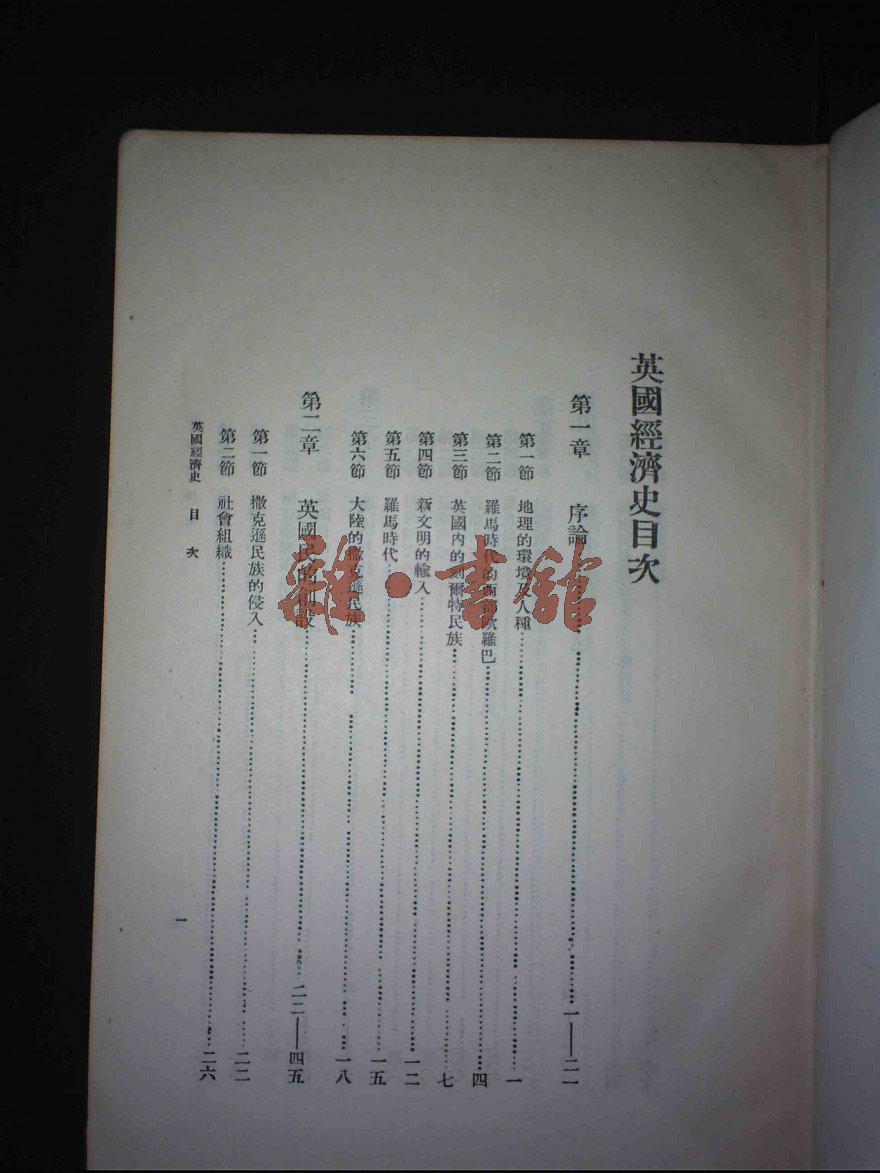 英國經濟史目次
第一章　序論……一——二一
第一節　地理的環境及人種……一
第二節　羅馬時代的西部歐羅巴……四
第三節　英國內的刻爾特民族……七
第四節　新文明的輸入……一二
第五節　羅馬時代……一五
第六節　大陸的撒克遜民族……一八
第二章　英國民的創設……二二——四五
第一節　撒克遜民族的侵入……二二
第二節　社會組織……二六
英國經濟史　目次
一
雜·書館